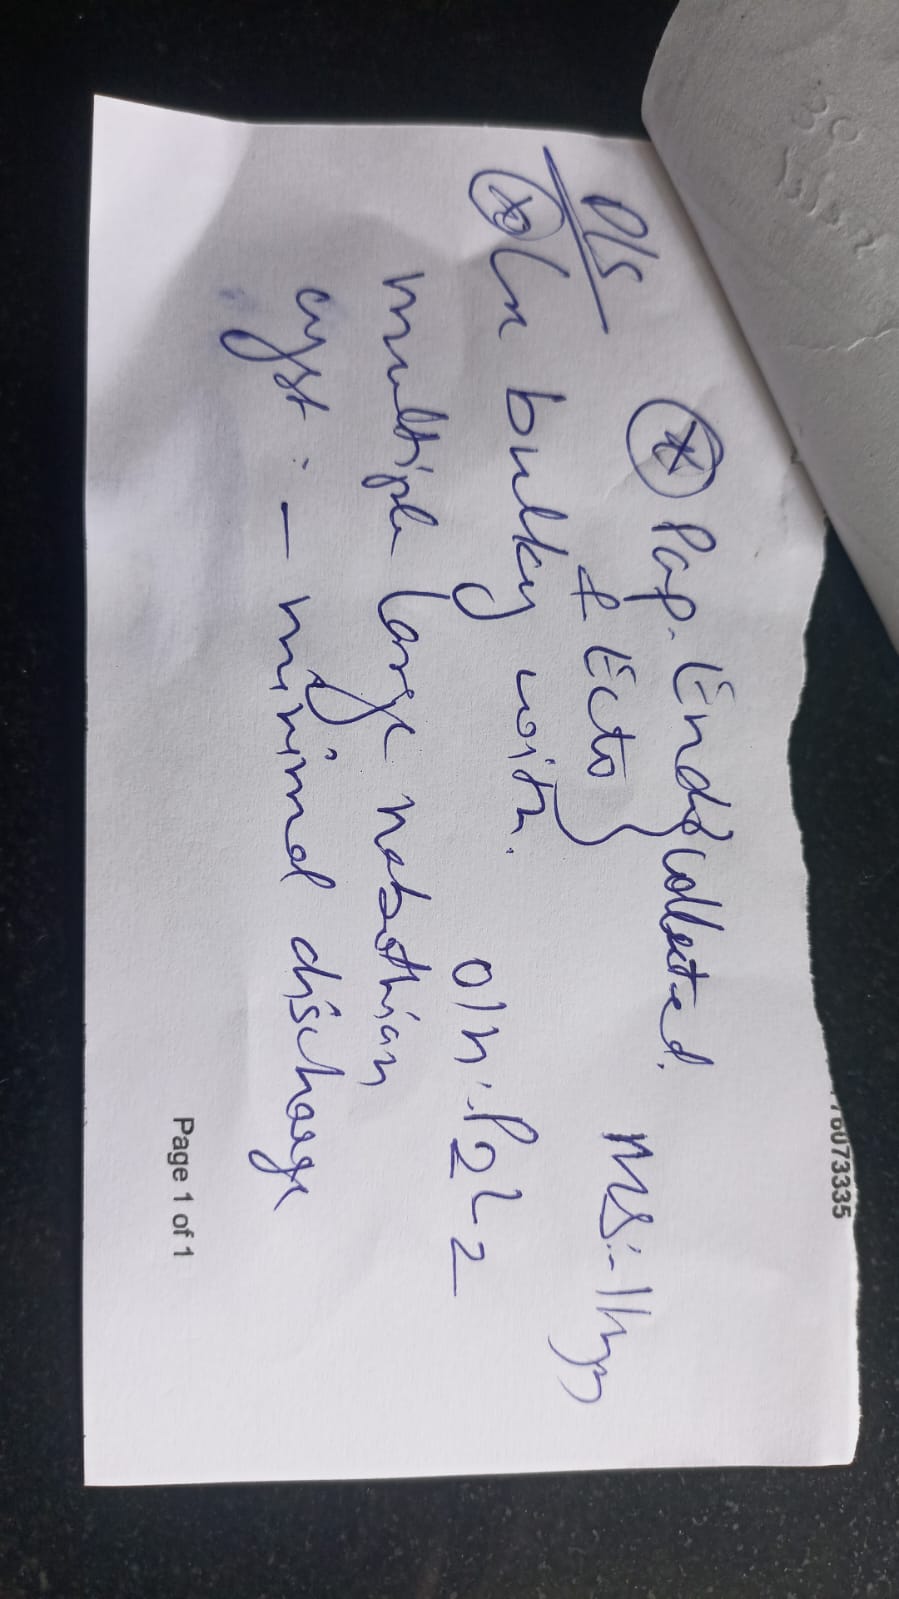 76073335
* Pap. Endo } collected.
& Ecto }
MS:- 11 yrs
P/S
* Cx bulky with.
O/H:- P2L2
multiple large nabothian
cyst: - minimal discharge
Page 1 of 1